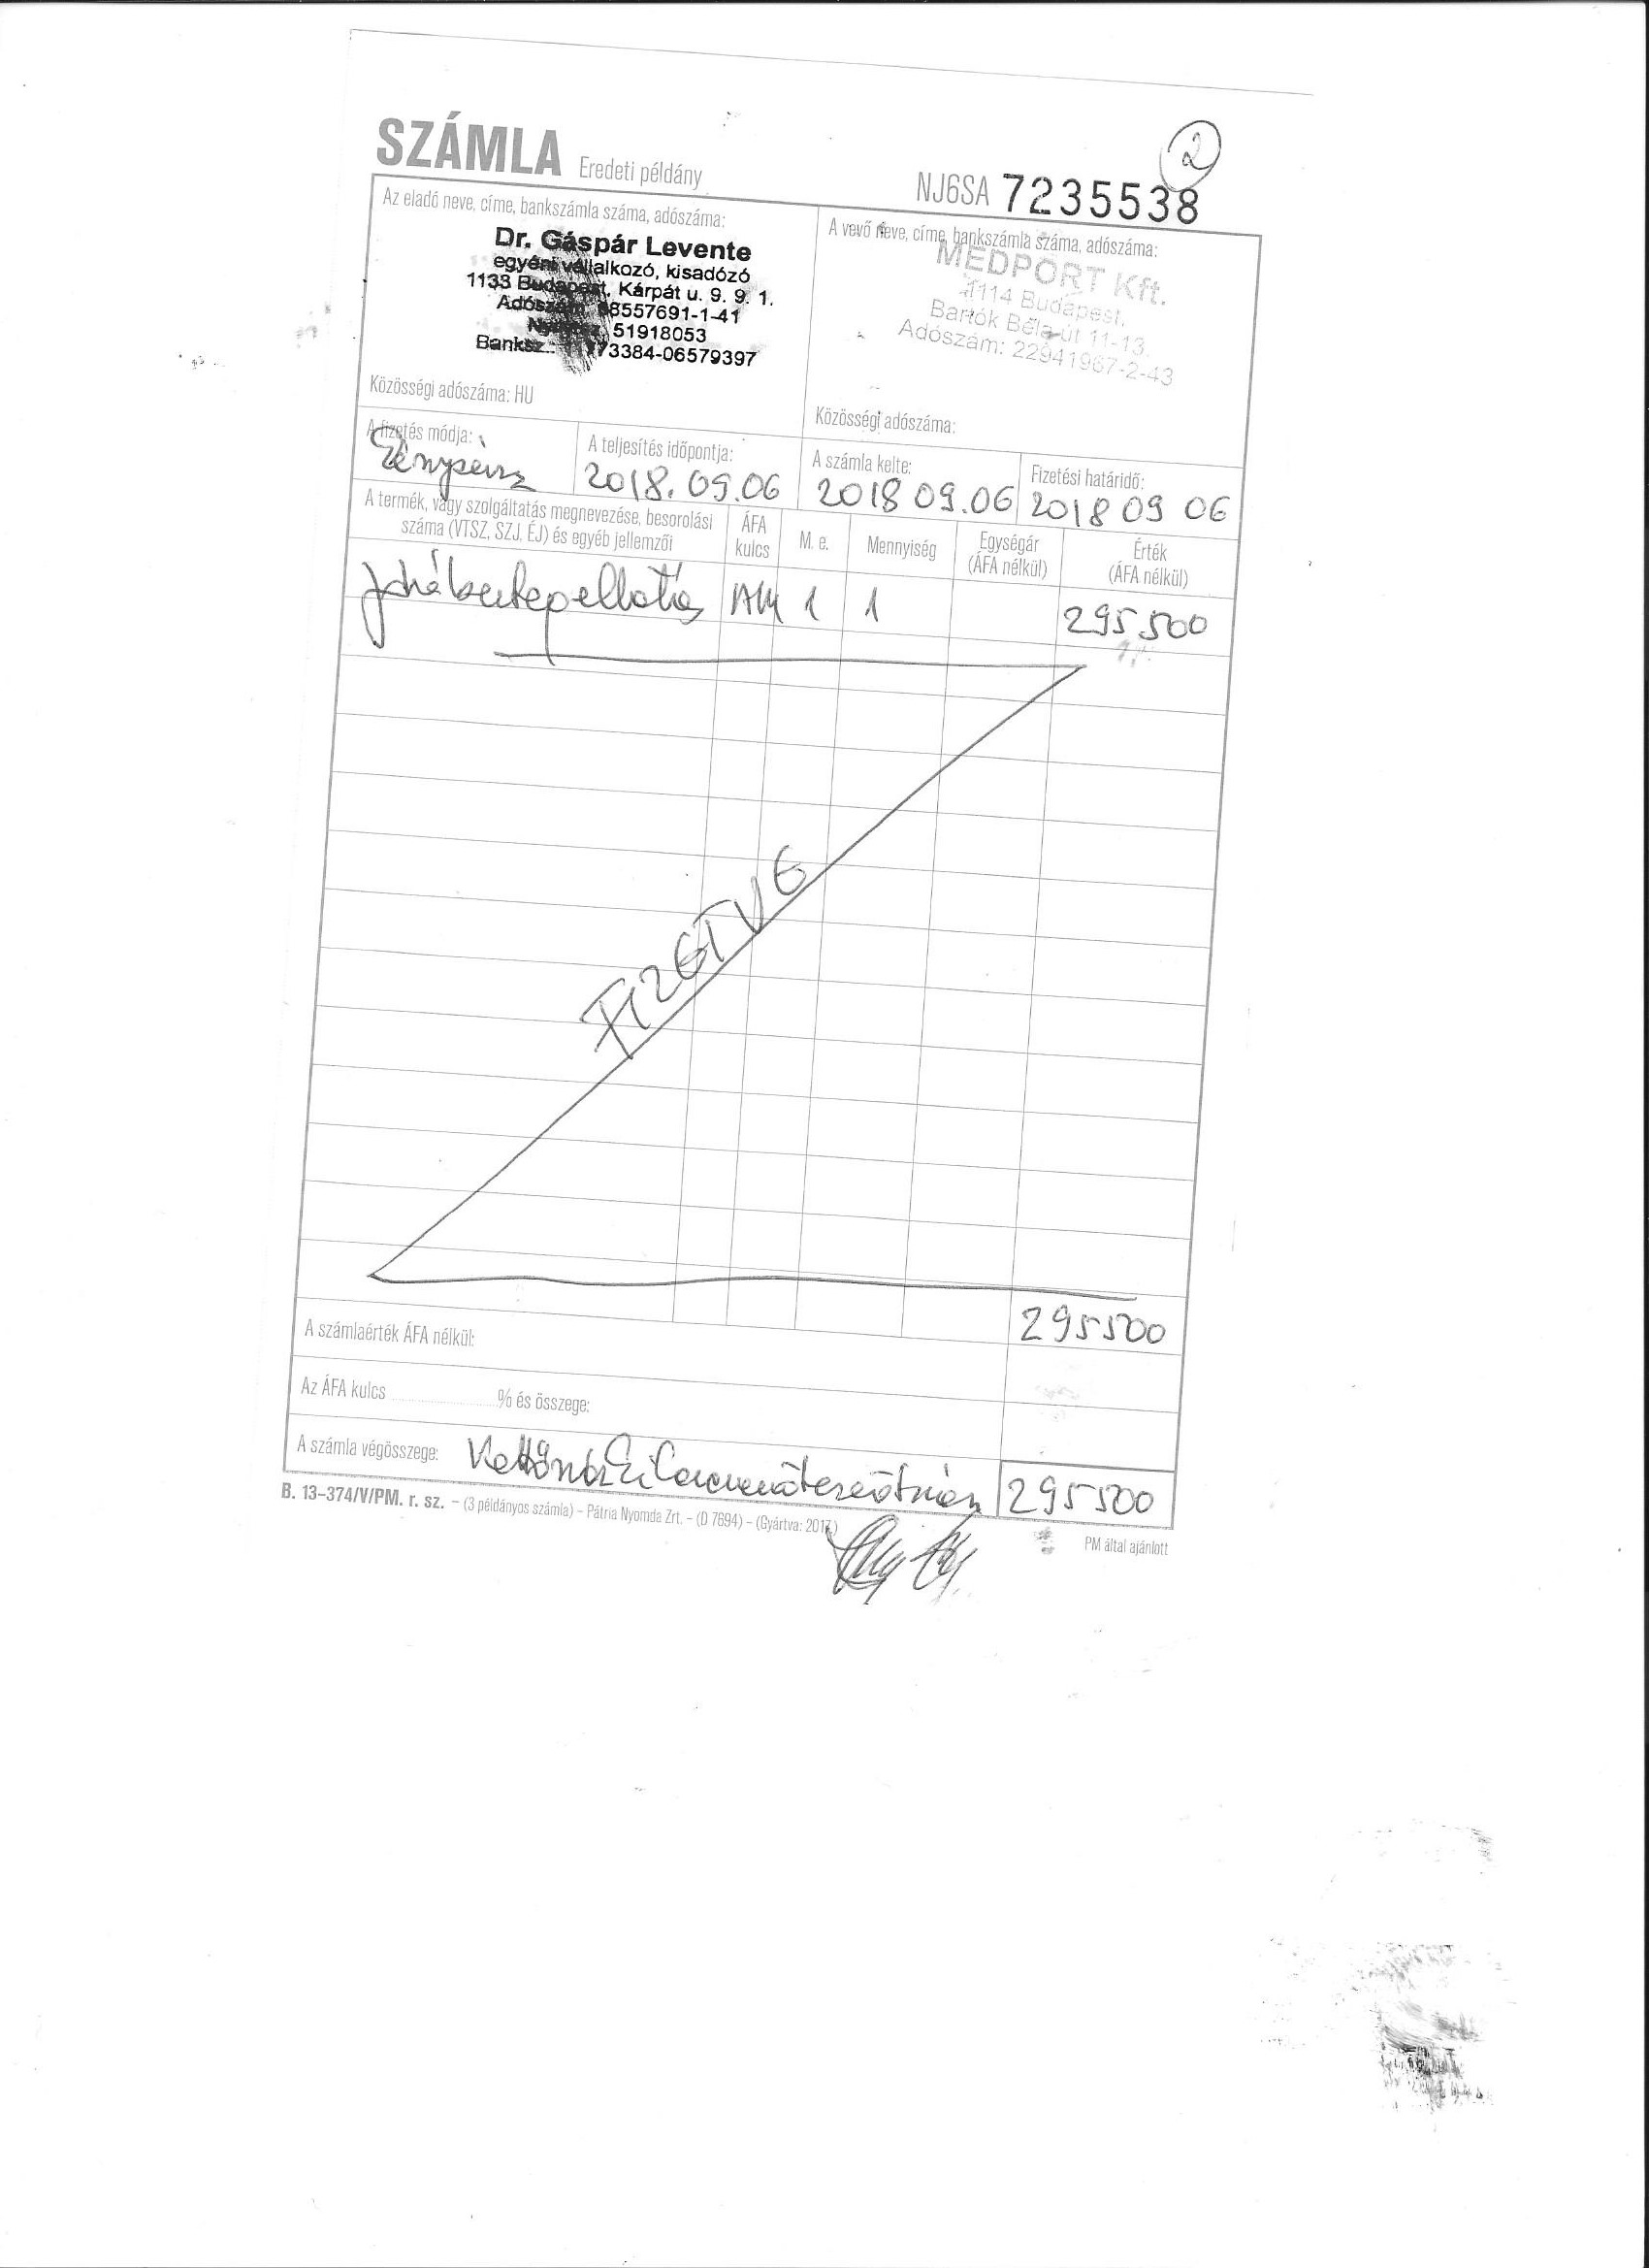 2
SZÁMLA Eredeti példány
NJ6SA 7235538
Az eladó neve, címe, bankszámla száma, adószáma:
Dr. Gáspár Levente
egyéni vállalkozó, kisadózó
1133 Budapest, Kárpát u. 9. 9. 1.
Adószám: 68557691-1-41
51918053
Banksz.: 73384-06579397
Közösségi adószáma: HU
A vevő neve, címe, bankszámla száma, adószáma:
MEDPORT Kft.
1114 Budapest,
Bartók Béla út 11-13.
Adószám: 22941967-2-43
Közösségi adószáma:
A fizetés módja:
Készpénz
A teljesítés időpontja:
2018.09.06
A számla kelte:
2018 09.06
Fizetési határidő:
2018 09 06
A termék, vagy szolgáltatás megnevezése, besorolási
száma (VTSZ, SZJ, ÉJ) és egyéb jellemzői
ÁFA
kulcs
M. e.
Mennyiség
Egységár
(ÁFA nélkül)
Érték
(ÁFA nélkül)
AM 1 1 295500
FIZETVE
295500
A számlaérték ÁFA nélkül:
Az ÁFA kulcs ........................% és összege:
A számla végösszege: 295500
B. 13–374/V/PM. r. sz. – (3 példányos számla) – Pátria Nyomda Zrt. – (D 7694) – (Gyártva: 2017.)
PM által ajánlott